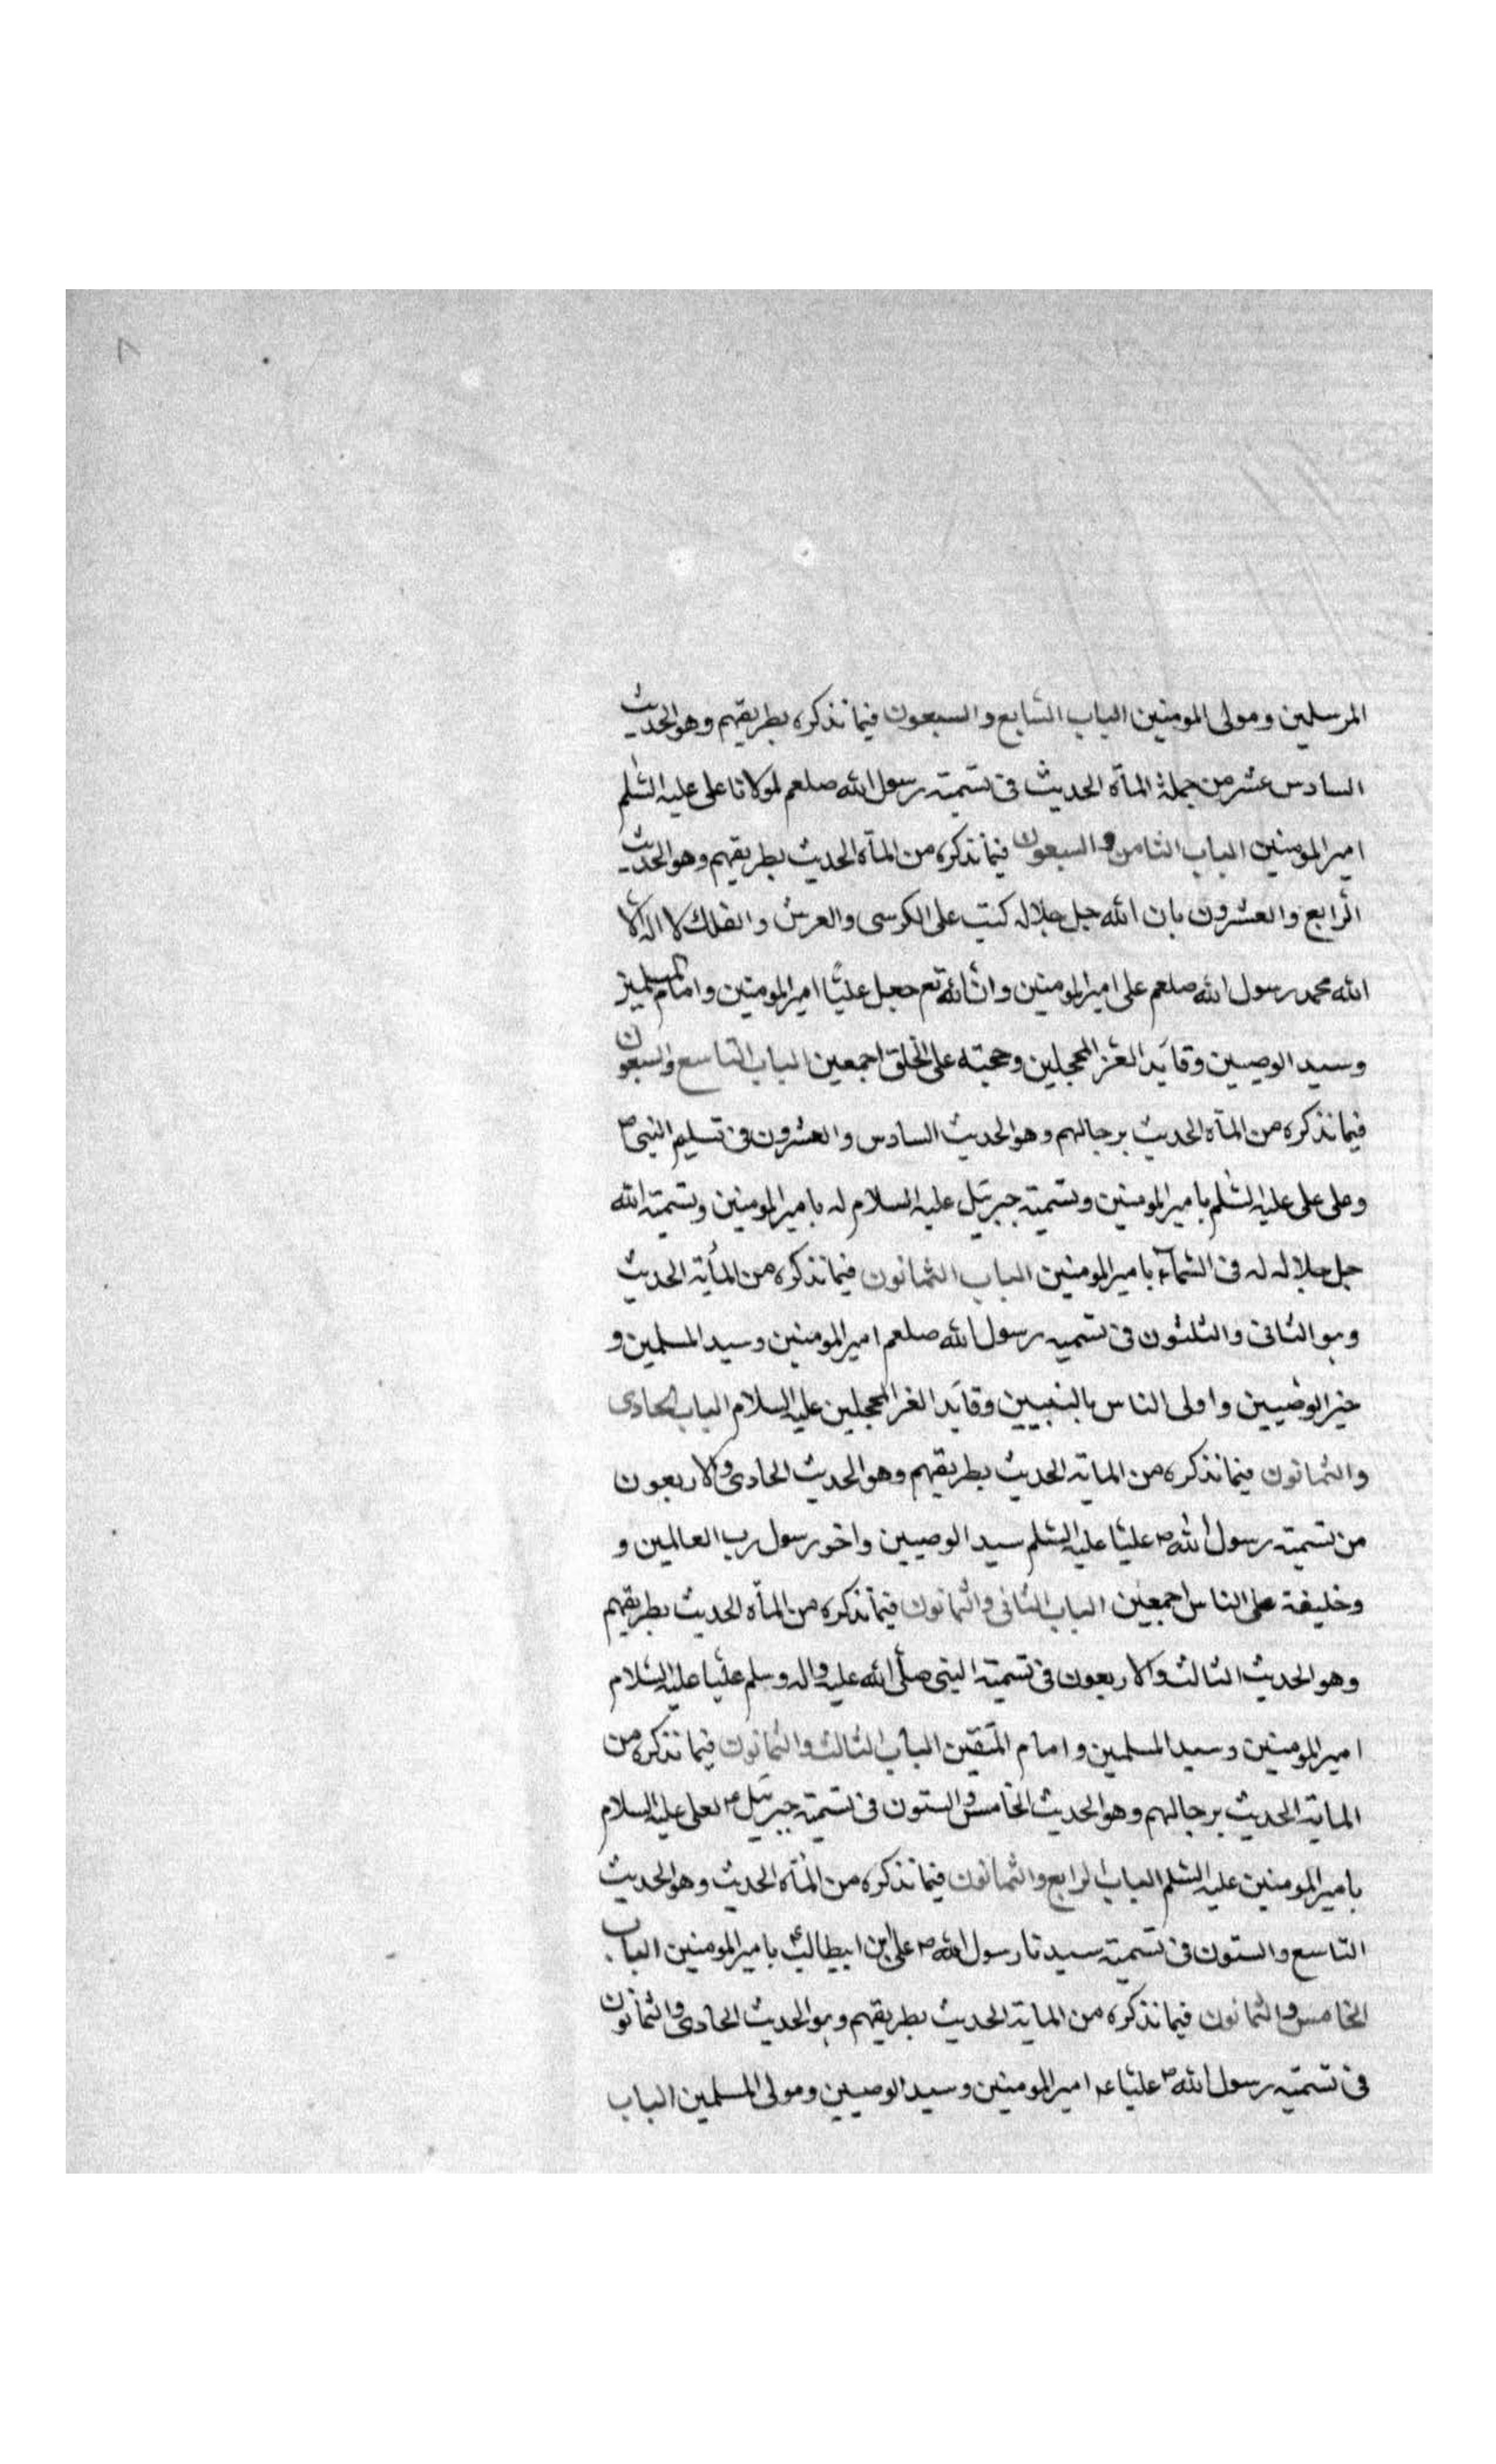 ٨
المرسلين ومولى المومنين الباب السابع والسبعون فيما نذكره بطريقهم وهو الحديث
السادس عشر من جملة المآة الحديث فى تسمية رسول الله صلعم لمولانا على عليه السلم
امير المومنين الباب الثامن والسبعون فيما نذكره من المآة الحديث بطريقهم وهو الحديث
الرابع والعشرون بان الله جل جلاله كتب على الكرسى والعرش والفلك لا اله الا
الله محمد رسول الله صلعم على امير المومنين وان الله تع جعل عليًا امير المومنين وامام المسلمين
وسيد الوصيين وقايد الغر المحجلين وحجته على الخلق اجمعين الباب التاسع والسبعون
فيما نذكره من المآة الحديث برجالهم وهو الحديث السادس والعشرون فى تسليم النبى ص
وعلى على عليه السلم بامير المومنين وتسمية جبرئيل عليه السلام له بامير المومنين وتسمية الله
جل جلاله له فى السماء بامير المومنين الباب الثمانون فيما نذكره من المأية الحديث
وهو الثانى والثلثون فى تسميه رسول الله صلعم امير المومنين وسيد المسلمين و
خير الوصيين واولى الناس بالنبيين وقايد الغر المحجلين عليه السلام الباب الحادى
والثمانون فيما نذكره من الماية الحديث بطريقهم وهو الحديث الحادى والاربعون
من تسمية رسول الله ص عليًا عليه السلم سيد الوصيين واخو رسول رب العالمين و
وخليفة على الناس اجمعين الباب الثانى والثمانون فيما نذكره من المآة الحديث بطريقهم
وهو الحديث الثالث والاربعون فى تسمية النبى صلى الله عليه واله وسلم عليًا عليه السلام
امير المومنين وسيد المسلمين وامام المتقين الباب الثالث والثمانون فيما نذكره من
الماية الحديث برجالهم وهو الحديث الخامس والستون فى تسمية جبرئيل ع لعلى عليه السلام
بامير المومنين عليه السلم الباب الرابع والثمانون فيما نذكره من المآة الحديث وهو الحديث
التاسع والستون فى تسمية سيدنا رسول الله ص على ابن ابيطالب ع بامير المومنين الباب
الخامس والثمانون فيما نذكره من الماية الحديث بطريقهم وهو الحديث الحادى والثمانون
فى تسمية رسول الله ص عليًا عه امير المومنين وسيد الوصيين ومولى المسلمين الباب